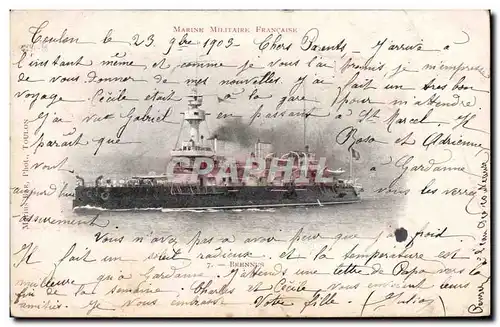 MARINE MILITAIRE FRANÇAISE
Toulon le 23 9bre 1903 Chers Parents - J'arrive à
l'instant même et comme je vous l'ai promis je m'empresse
de vous donner de mes nouvelles. J'ai fait un très bon
voyage. Cécile était à la gare pour m'attendre
J'ai vu Gabriel en passant à St Marcel. Il
paraît que Rosa et Adrienne
vont à Gardanne
aujourd'hui vous les verrez
assurement
Vous n'avez pas à avoir peur que j'ai froid
Il fait un soleil radieux et la température est
meilleure qu'à Gardanne. J'attends une lettre de Papa vers la
fin de la semaine. Charles et Cécile vous envoient leurs
amitiés. Je vous embrasse Votre fille
7. — BRENNUS
PHOT., TOULON
CPHARTI